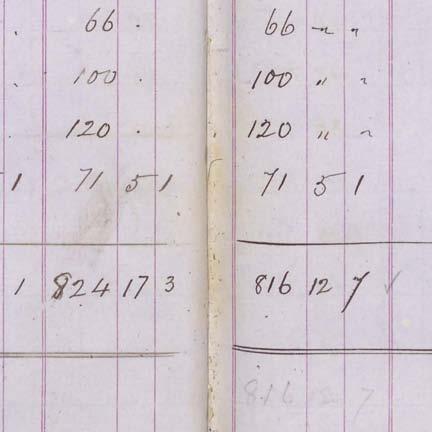 66 .
100 .
120 .
1 71 5 1
1 824 17 3
66 " "
100 " "
120 " "
71 5 1
816 12 7 ✓
816 12 7